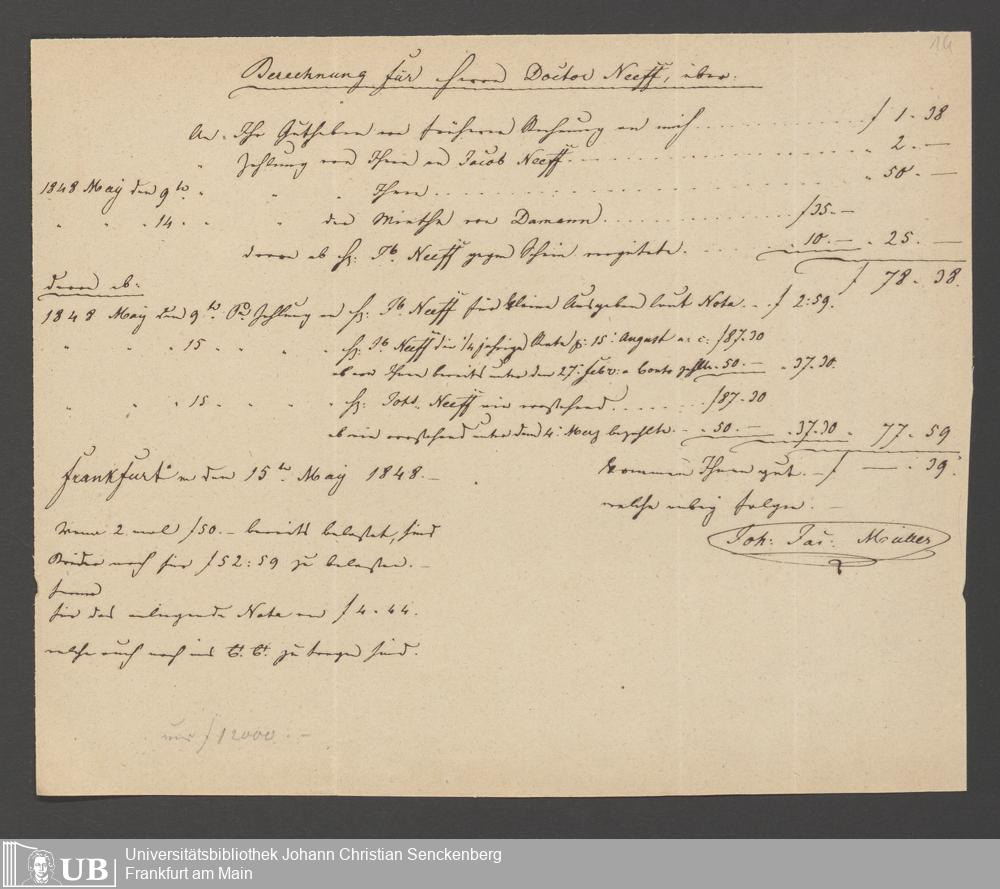 14
Berechnung für Herrn Doctor Neeff, über:
An Ihr Guthaben von früherer Rechnung an mich f 1. 38
" Zahlung von Ihnen an Jacob Neeff " 2. —
1848 May den 9ten " " Ihnen " 50. —
" " " 14 " " der Miethe von Damann f 35. —
davon ab H: Jb. Neeff gegen Schein vergütete " 10. — " 25. —
f 78. 38.
davon ab:
1848 May den 9ten Pr Zahlung an H: Jb. Neeff für kleine Ausgaben laut Nota f 2:59.
" " " 15 " " " H: Jb Neeff die 1/4 jährige Rata p: 15 August a: c: f 87.30
ab von Ihnen bereits unter dem 27 febr: a Conto gezahlte 50. — " 37. 30.
" " " 15 " " " H: Joh: Neeff wie vorstehend f 87.30
ab wie vorstehend unter dem 4 Merz bezahlte " 50. — " 37.30 " 77. 59
kommen Ihnen gut f — . 39.
Frankfurt a/m den 15ten May 1848.
welche übrig folgen.
wenn 2 mal f 50. — bereits belastet, sind
Joh: Jac: Müller
Beider noch für f 52:59 zu belasten. —
ferner
für das anliegende Nota von f 4. 44.
welche auch noch ins zu tragen sind.
f 12000. —
UB Universitätsbibliothek Johann Christian Senckenberg
Frankfurt am Main